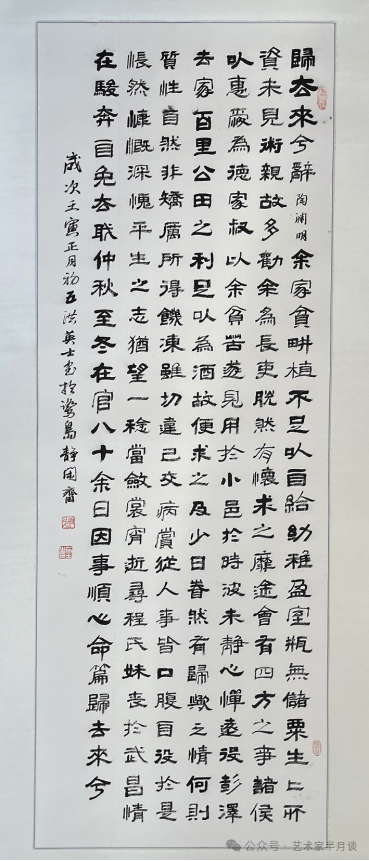 歸去來兮辭 陶渊明 余家貧畊植不足以自給幼稚盈室瓶無儲粟生〻所
資未見術親故多勸余為長吏脱然有懷求之靡途會有四方之事諸侯
以惠愛為德家叔以余貧苦遂見用於小邑於時波未靜心憚遠役彭澤
去家百里公田之利足以為酒故便求之及少日眷然有歸歟之情何則
質性自然非矯厲所得饑凍雖切違己交病嘗從人事皆口腹自役於是
悵然慷慨深愧平生之志猶望一稔當斂裳宵逝尋程氏妹喪於武昌情
在駿奔自免去職仲秋至冬在官八十余日因事順心命篇歸去來兮
歲次壬寅正月初五洪英士書於鷺島靜齋
公众号·艺术家半月谈